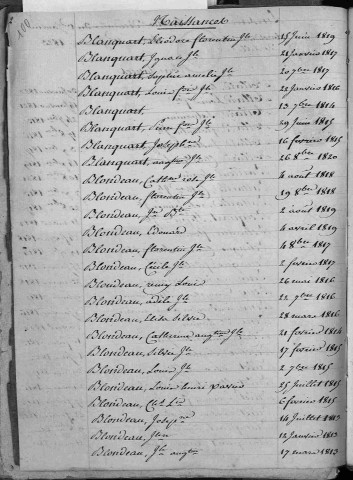 Naissances
Blanquart, Théodore florentin Jh 25 Juin 1819
Blanquart, Ignace Jh 21 Janvier 1817
Blanquart, Sophie aurelie Jh 20 7bre 1817
Blanquart, Louis fois Jh 22 Janvier 1816
Blanquart, 13 7bre 1814
Blanquart, Pierre fois Jh 29 Juin 1815
Blanquart, Joseph 16 fevrier 1815
Blanquart, augtin Jh 26 8bre 1820
Blondeau, Cathne ros. Jh 4 août 1818
Blondeau, florentin Jh 19 8bre 1818
Blondeau, Jn Bte 2 août 1819
Blondeau, Edouard 4 avril 1819
Blondeau, florentin Jh 4 8bre 1817
Blondeau, Cécile Jh 2 fevrier 1817
Blondeau, remy Louis 26 mai 1816
Blondeau, adèle Jh 22 7bre 1816
Blondeau, Silvie 28 mars 1816
Blondeau, Catherine augtine Jh 21 fevrier 1814
Blondeau, Silvie Jh 17 fevrier 1815
Blondeau, Louis Jh 2 7bre 1815
Blondeau, Louis henri 25 Juillet 1815
Blondeau, 6 fevrier 1815
Blondeau, 14 Juillet 1813
Blondeau, 12 Janvier 1813
Blondeau, Jh augtin 17 mars 1813